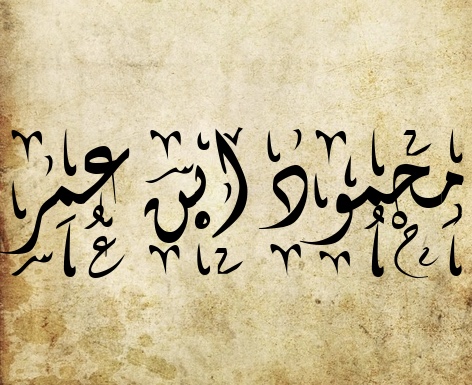 محمود ابن عمر